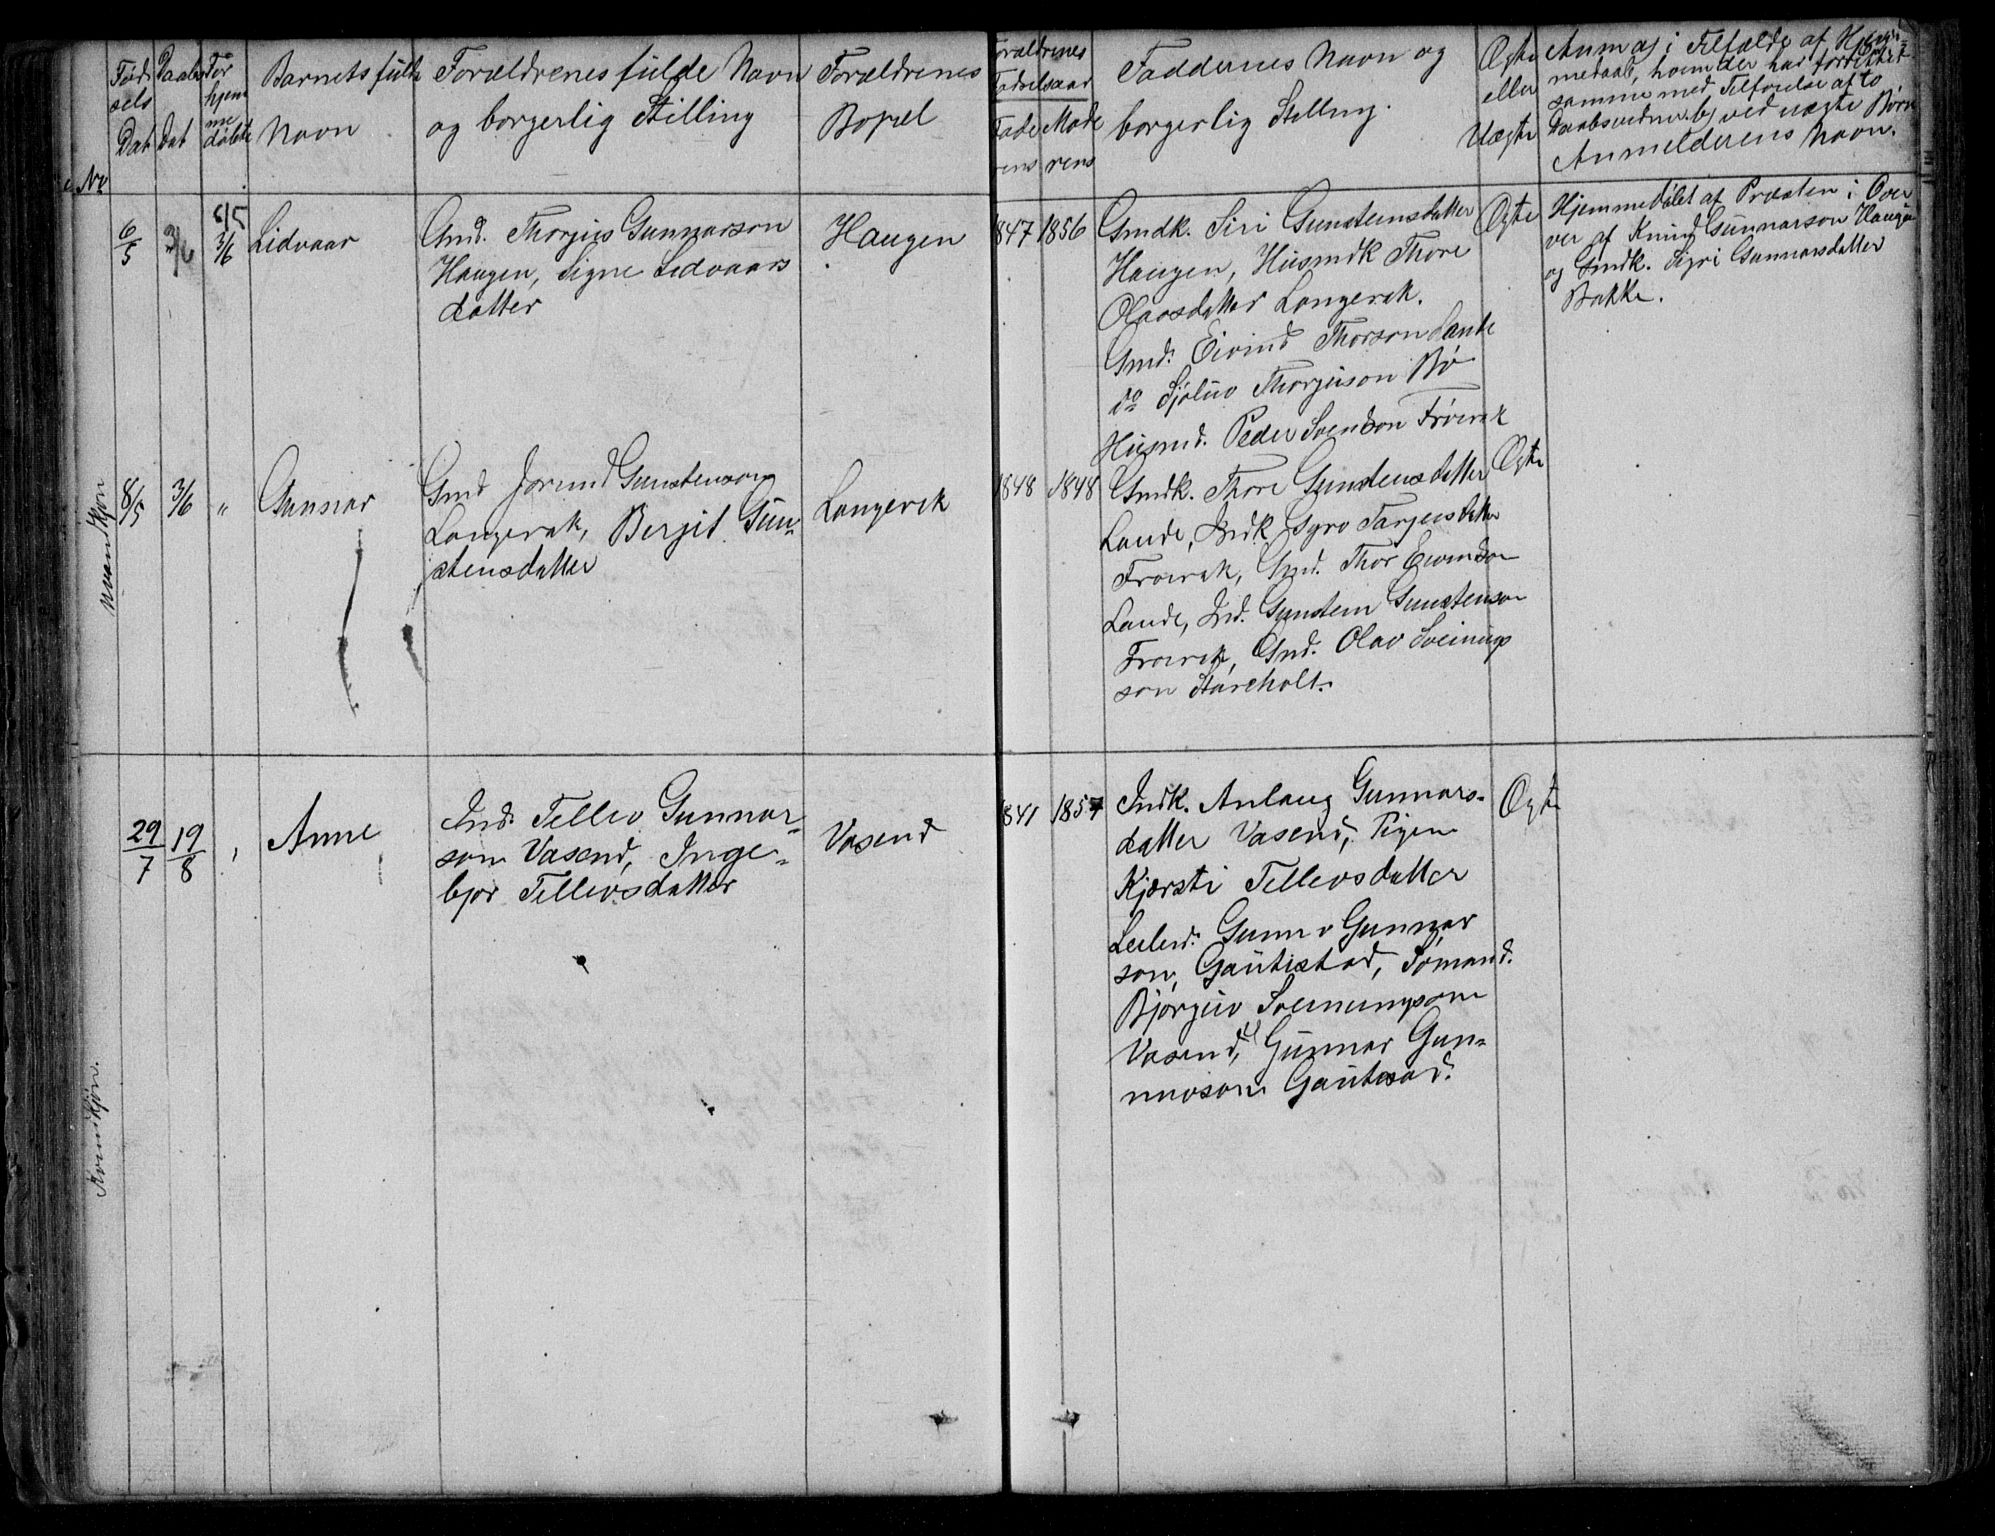 Föd- sels Dat
Daabs Dat
For hjem me döbte
Barnets fulde Navn
Forældrenes fulde Navn
og borgerlig Stilling
Forældrenes
Bopæl
Forældrenes
Födselsaar
Fade rens
Mode rens
Faddernes Navn og
borgerlig Stilling.
Ægte
eller
Uægte
Anm a) i Tilfælde af Hjem-
medaab, hvem der har forrettet
samme med Tilföielse af to
Daabsvidner. b) ved uægte Börn
Anmelderens Navn.
No
Mandkjön
6/5
8/5
3/6
Lidvaar
Gmd. Thorjus Gunnarson
Haugen, Signe Lidvaars
datter
Haugen
1847 1856
Gmdk. Siri Gunsteinsdatter
Haugen, Husmdk Thore
Olavsdatter Langerak.
Gmd. Eivind Thorson Lande
do Sjöluv Thorjuson Bö
Husmd. Peder Svendson Fröirak
Ægte
Hjemmedöbt af Præsten i Over
vær af Knud Gunnarson Haugen
og Gmdk. Sigri Gunnarsdatter
Bakke.
8/5 3/6 "
Gunnar
Gmd Jorund Gunstenson
Langerak, Bergit Gun-
stensdatter
Langerak
1848 1848
Gmdk. Thore Gunstensdatter
Lande, Indk Sgro Tarjeisdatter
Froirak, Gmd. Thor Eivindson
Lande, Ind. Gunstein Gunstenson
Froirak, Gmd. Olav Sveinungs
son Stareholt.
Ægte
Kvindkjön.
29/7 19/8
Anne
Ind. Tellev Gunnar-
son Vasend, Inge-
bjor Tellevsdatter
Vasend
1841 1857
Indk. Anlaug Gunnars-
datter Vasend, Pigen
Kjærsti Tellevsdatter
Leilend. Gunnuv Gunnar
son, Gautestad, Sömand.
Björguv Sveinungson
Vasend, Gunnar Gun-
nuvson Gautesad.
Ægte